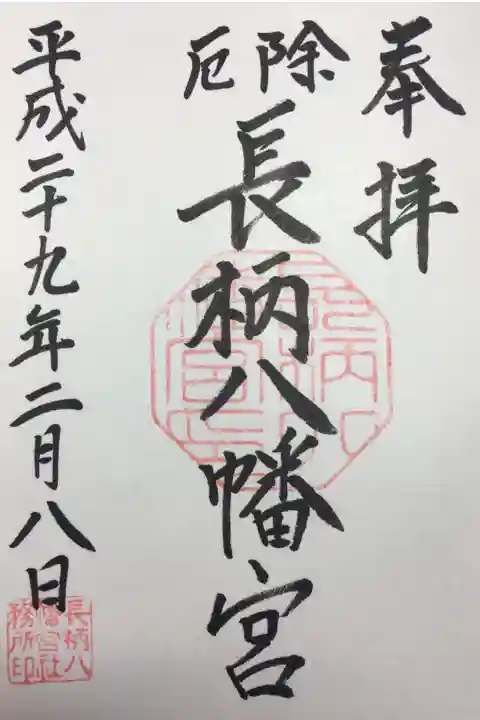 奉拝
厄除
長柄八幡宮
平成二十九年二月八日
長柄八
幡宮社
務所印